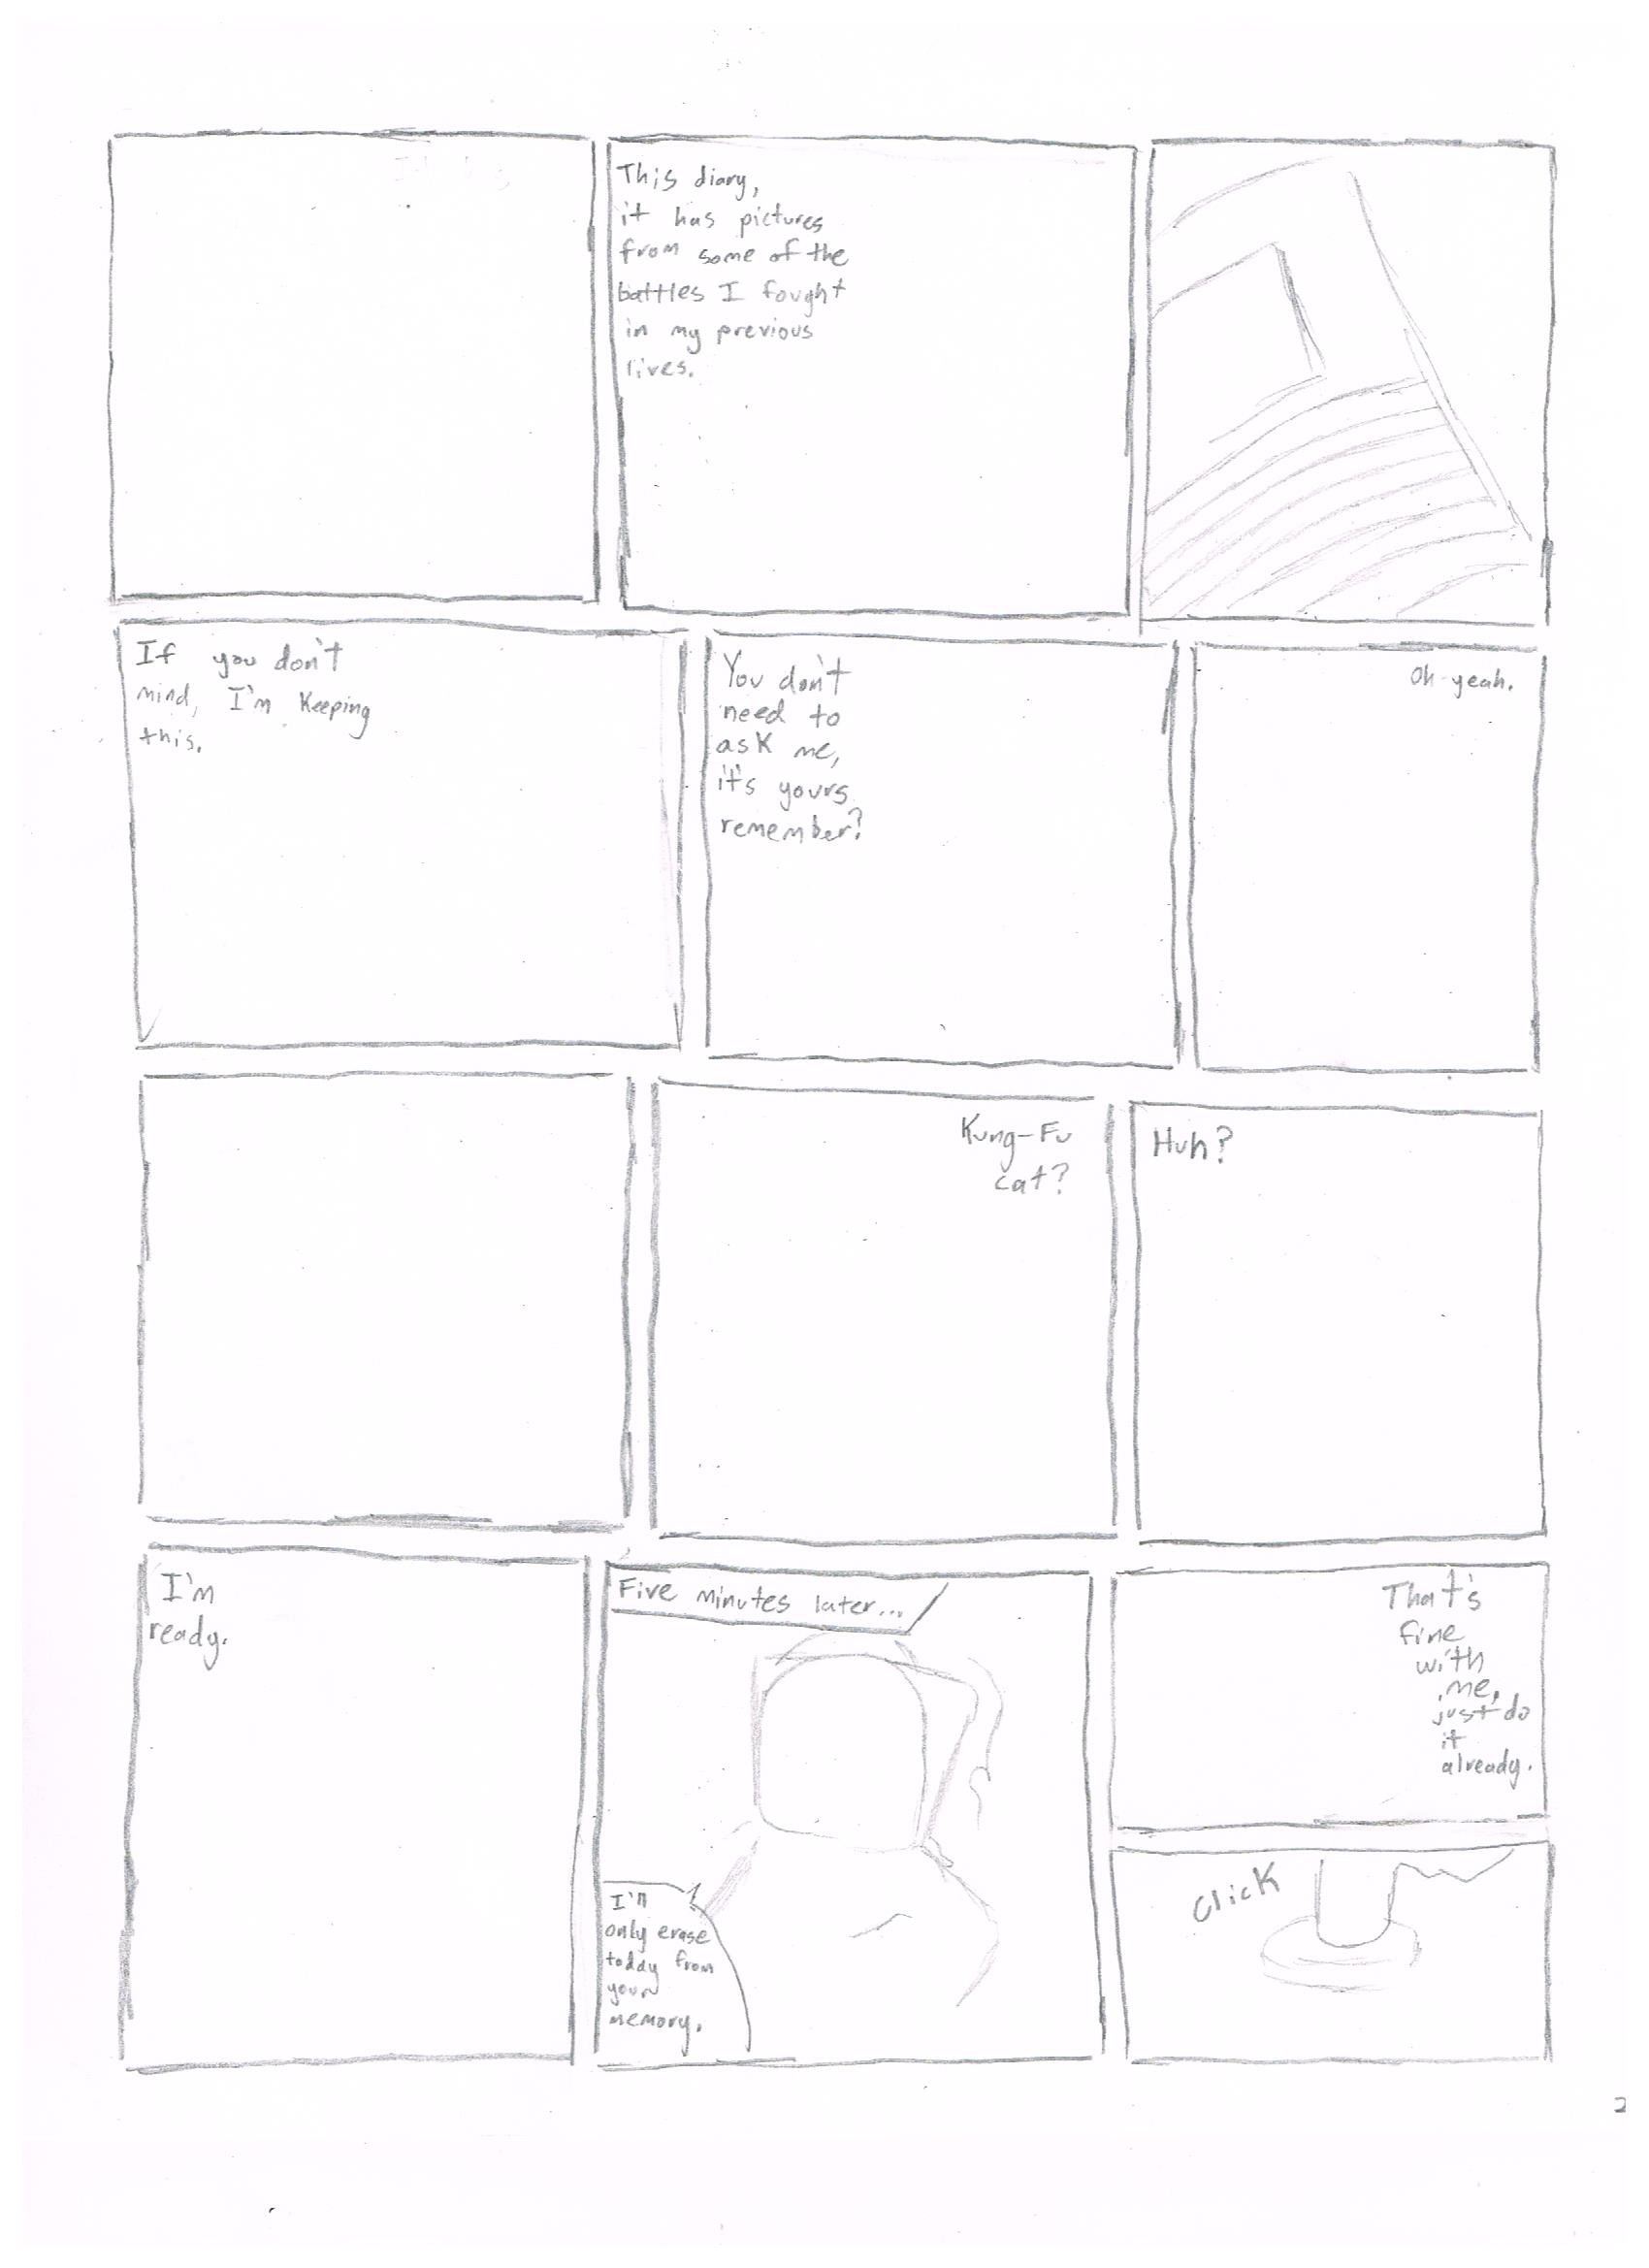 This diary,
it has pictures
from some of the
battles I fought
in my previous
lives.
If you don't
mind, I'm keeping
this.
You don't
need to
ask me,
it's yours
remember?
Oh yeah.
Kung-Fu
cat?
Huh?
I'm
ready.
Five minutes later...
I'll
only erase
today from
your
memory.
That's
fine
with
me,
just do
it
already.
Click
2